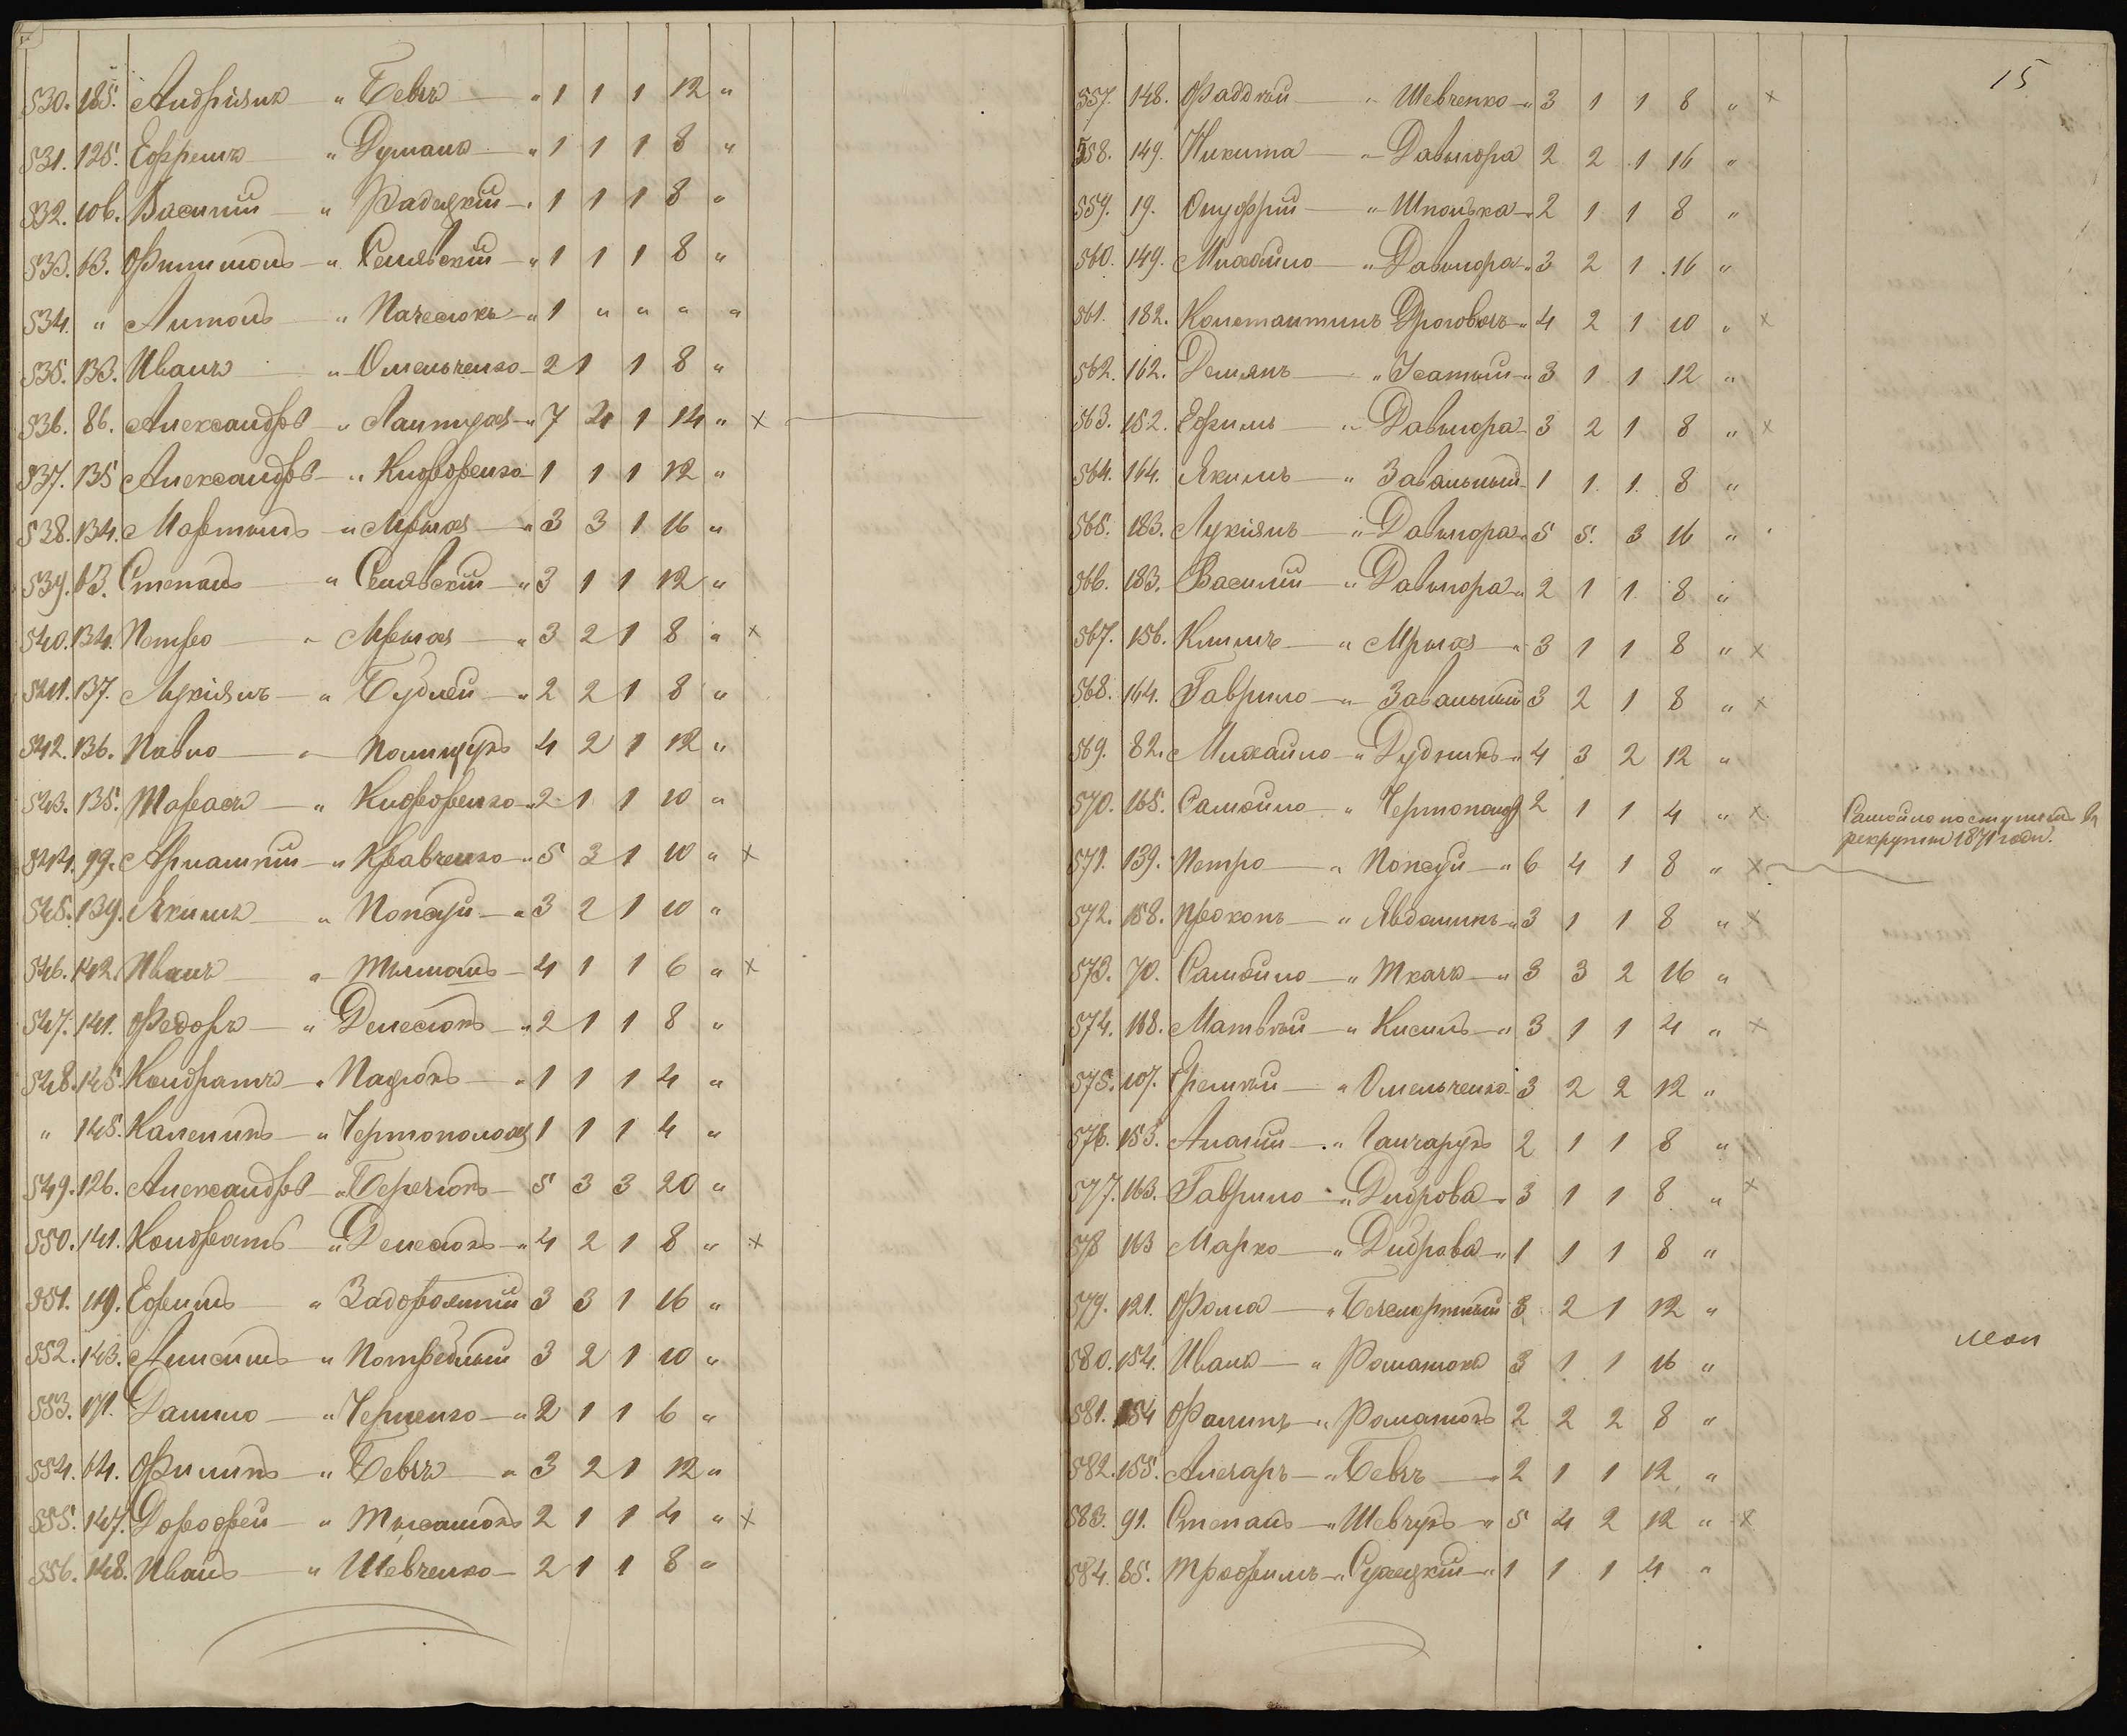 530. 185. Андріянъ — „ Бевзъ — „ 1 1 1 12 „
531. 125. Ефремъ — „ Думанъ — „ 1 1 1 8 „
532. 106. Василий — „ Радецкій — „ 1 1 1 8 „
533. 63. Филимонъ — „ Сенявскій — „ 1 1 1 8 „
534. „ Антонъ — „ Пачесюкъ — „ 1 „ „ „ „
535. 133. Иванъ — „ Омельченко — 2 1 1 8 „
536. 86. Александръ — „ Лантухъ — „ 7 4 1 14 „ x
537. 135 Александръ — „ Кидоренко — 1 1 1 12 „
538. 134. Мартынъ — „ Мрыхъ — „ 3 3 1 16 „
539. 63. Степанъ — „ Сенявскій — „ 3 1 1 12 „
540. 134. Петро — „ Мрыхъ — „ 3 2 1 8 „ x
541. 137. Лукіянъ — „ Будней — „ 2 2 1 8 „
542. 136. Павло — „ Полищукъ 4 2 1 12 „
543. 135. Тарасъ — „ „ 2 1 1 10 „
544. 99. — „ Кравченко — „ 5 3 1 10 „ x
545. 139. Якимъ — „ Попсуй — „ 3 2 1 10 „
546. 142. Иванъ — „ — 4 1 1 6 „ x
547. 141. Федоръ — „ Денесюкъ — „ 2 1 1 8 „
548. 145. Кондратъ — „ Пацюкъ — „ 1 1 1 4 „
„ 145. Каленикъ — „ Чертополохъ 1 1 1 4 „
549. 126. Александръ — „ — 5 3 3 20 „
550. 141. Кондратъ „ Денесюкъ — „ 4 2 1 8 „ x
551. 119. Ефимъ — „ Задорожный 3 3 1 16 „
552. 143. Анисимъ — „ Потребный 3 2 1 10 „
553. 171. Данило — „ Черненко — „ 2 1 1 6 „
554. 64. Филипъ — „ Бевзъ — „ 3 2 1 12 „
555. 147. Дорофей — „ 2 1 1 4 „ x
556. 148. Иванъ — „ Шевченко — 2 1 1 8 „
15
557. 148. Фаддѣй — „ Шевченко — „ 3 1 1 8 „ x
558. 149. Никита — „ Давыдора 2 2 1 16 „
559. 19. Онуфрий — „ Шполька — 2 1 1 8 „
560. 149. Михайло — „ Давыдора „ 3 2 1 16 „
561. 182. Константинъ „ 4 2 1 10 „ x
562. 162. Демянъ — „ Усатый — „ 3 1 1 12 „
563. 152. Ефимъ — „ Давыдора 3 2 1 8 „ x
564. 164. Якимъ — „ Завальный 1 1 1 8 „
565. 183. Лукіянъ — „ Давыдора „ 5 5 3 16 „
566. 183. Василий — „ Давыдора „ 2 1 1 8 „
567. 156. Климъ — „ Мрыхъ — „ 3 1 1 8 „ x
568. 164. Гаврило — „ Завальный 3 2 1 8 „ x
569. 82. Михайло — „ Дудникъ — „ 4 3 2 12 „
570. 165. Самойло — „ Чертополохъ 2 1 1 4 „ x Самойло поступилъ въ
рекруты 1871 года.
571. 139. Петро — „ Попсуй — „ 6 4 1 8 „ x
572. 158. Прокопъ — „ Явдошинъ — „ 3 1 1 8 „ x
573. 70. Самойло — „ Ткачъ — „ 3 3 2 16 „
574. 168. Матвѣй — „ Кисиль — „ 3 1 1 4 „ x
575. 107. Еремѣй — „ Омельченко 3 2 2 12 „
576. 153. — „ Ганчарукъ 2 1 1 8 „
577. 163. Гаврило — „ Диброва — 3 1 1 8 „ x
578 163 Марко — „ Диброва — „ 1 1 1 8 „
579. 121. Фома — „ Безсмертный 3 2 1 12 „
580. 154. Иванъ — „ Романюкъ 3 1 1 16 „
581. 154 — „ Романюкъ 2 2 2 8 „
582. 155. — „ Бевзъ — „ 2 1 1 12 „
583. 91. Степанъ — „ Шевчукъ — „ 5 4 2 12 „ x
584. 85. Трофимъ — „ „ 1 1 1 4 „